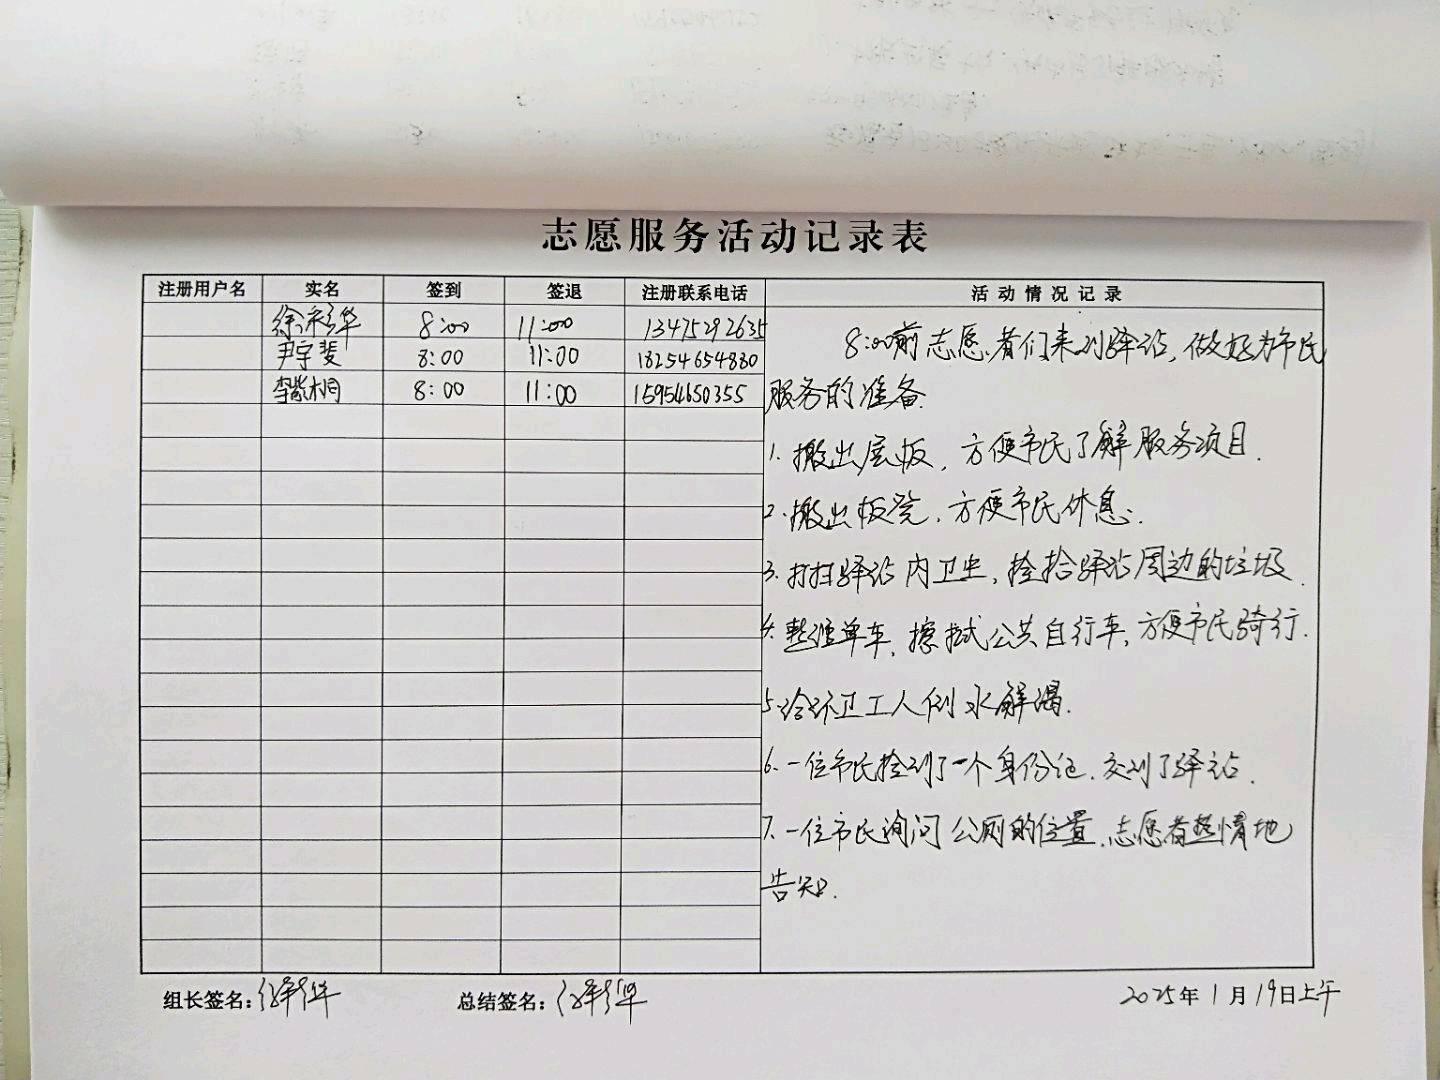 志愿服务活动记录表
注册用户名 实名 签到 签退 注册联系电话 活动情况记录
徐彩华 8:00 11:00 13475292635
尹宇斐 8:00 11:00 18254654880
李紫桐 8:00 11:00 15954650355
8:00前志愿者们来到驿站，做好为市民
服务的准备.
1. 搬出展板，方便市民了解服务项目.
2. 搬出板凳，方便市民休息.
3. 打扫驿站内卫生，捡拾驿站周边的垃圾.
4. 整理单车，擦拭公共自行车，方便市民骑行.
5. 给环卫工人倒水解渴.
6. 一位市民捡到了一个身份证，交到了驿站.
7. 一位市民询问公厕的位置，志愿者热情地
告知.
组长签名：徐彩华 总结签名：徐彩华 2025年1月19日上午